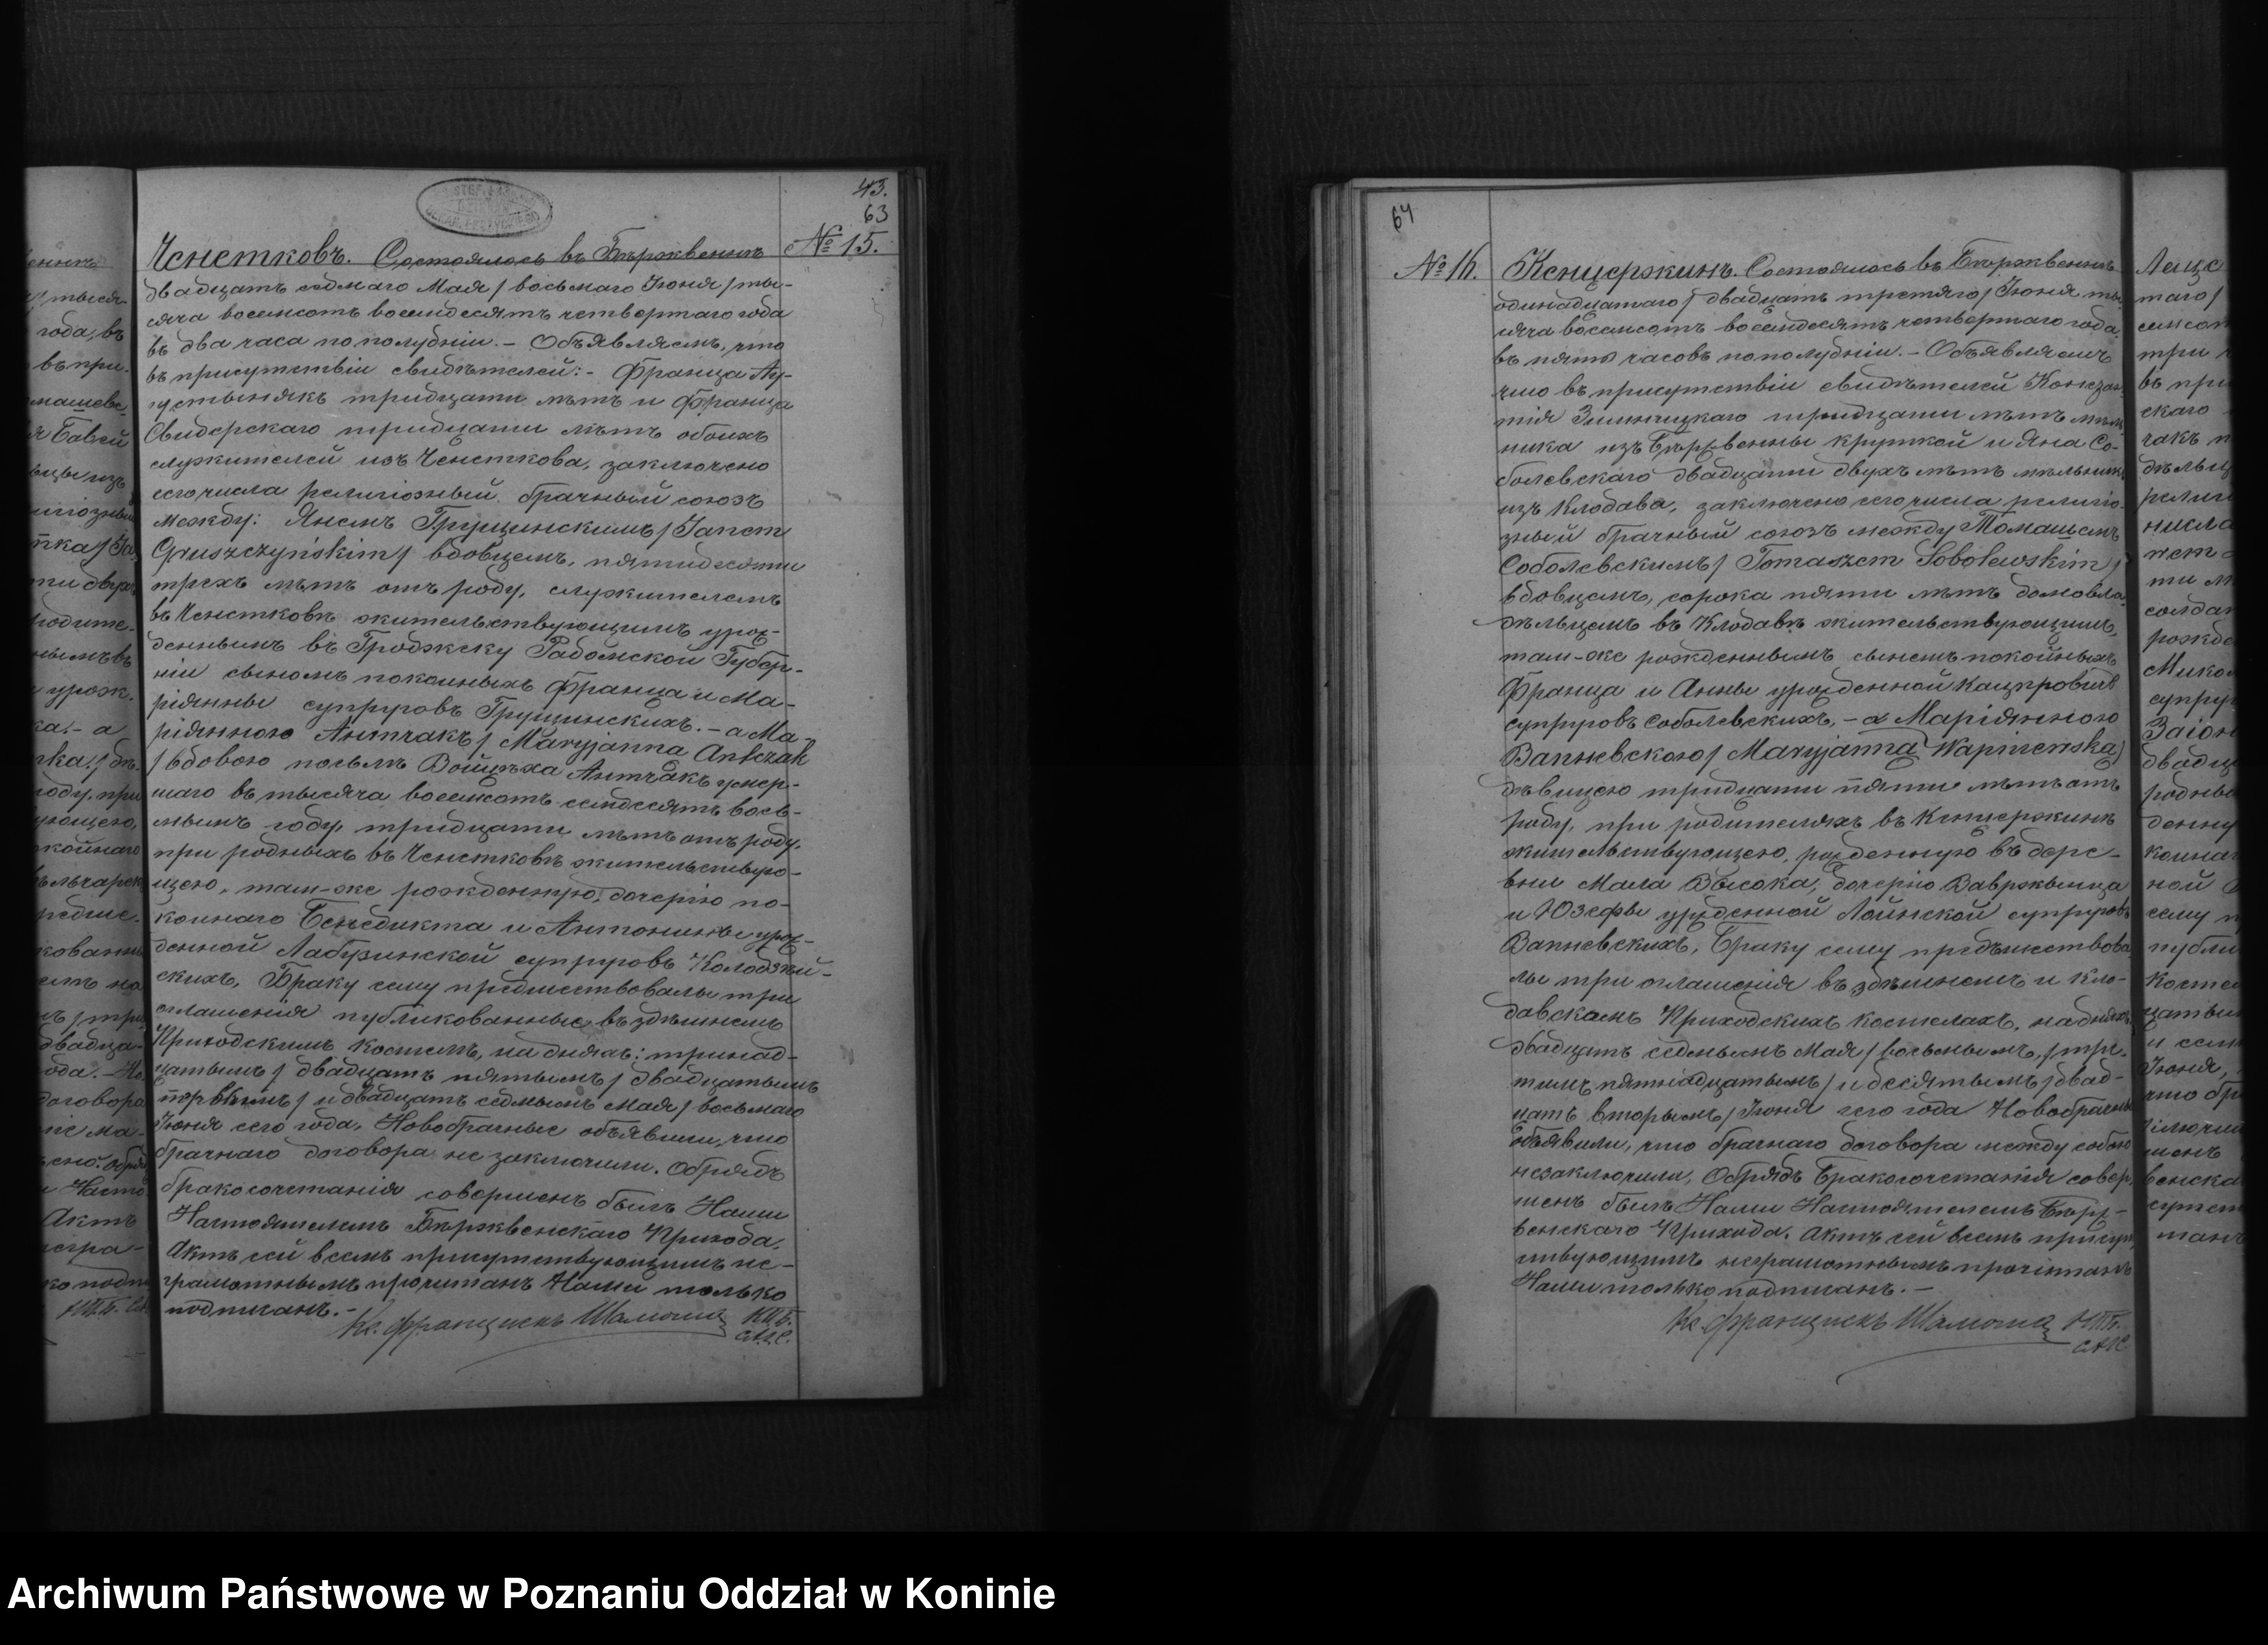 43.
63
№ 15.
Ченстковъ. Состоялось въ Бържвеннъ
двадцать седмаго Мая / восьмаго Іюня / ты-
сяча восемсотъ восемдесятъ четвертаго года
въ два часа пополудніи. – Объявляемъ, что
въ присутствіи свидѣтелей: – Франца Ау-
густынякъ тридцати лѣтъ и Франца
Свидерскаго тридцати лѣтъ обоихъ
служителей изъ Ченсткова, заключено
сего числа религіозный брачный союзъ
между: Яномъ Грущинскимъ / Janem
Gruszczyńskim / вдовцемъ, пятидесяти
трехъ лѣтъ отъ роду, служителемъ
въ Ченстковѣ жительствующимъ урож-
деннымъ въ Гроджску Радомской Губер-
ніи сыномъ покойныхъ Франца и Ма-
ріянны супруговъ Грущинскихъ. – а Ма-
ріянною Антчакъ / Maryjanna Antczak
/ вдовою послѣ Войцѣха Антчакъ умер-
шаго въ тысяча восемсотъ семдесятъ вось-
мымъ году, тридцати лѣтъ отъ роду,
при родныхъ въ Ченстковѣ жительствую-
щею, там-же рожденную, дочерію по-
койнаго Бенедикта и Антонины урож-
денной Лабузинской супруговъ Колодзѣй-
скихъ, Браку сему предшествовалы три
оглашенія публикованные въ здѣшнемъ
Приходскимъ костелѣ, на дняхъ: тринад-
цатымъ / двадцать пятымъ / двадцатымъ
первымъ / и двадцать седмымъ Мая / восьмаго
Іюня сего года, Новобрачные объявили, что
брачнаго договора не заключили. Обрядъ
бракосочетанія совершенъ былъ Нами
Настоятелемъ Бържвенскаго Прихода.
Актъ сей всемъ присутствующимъ не-
грамотнымъ прочитанъ Нами только
подписанъ. –
Кс. Францискъ Шамота К.П.Б.
С.А.С.
64
№ 16.
Кенцержинъ. Состоялось въ Бържвеннъ
одинадцатаго / двадцать третяго / Іюня ты-
сяча восемсотъ восемдесятъ четвертаго года
въ пять часовъ пополудніи. – Объявляемъ
что въ присутствіи свидѣтелей
тридцати лѣтъ
ника изъ и Яна Со-
болевскаго двадцати двухъ лѣтъ мѣльника
изъ Клодава, заключено сего числа религіо-
зный брачный союзъ между Томашемъ
Соболевскимъ / Tomaszem Sobolewskim /
вдовцемъ, сорока пяти лѣтъ домовла-
дѣльцемъ въ Клодавѣ жительствующимъ,
там-же рожденнымъ сыномъ покойныхъ
Франца и Анны урожденной
супруговъ Соболевскихъ, – а Маріянною
Вапневскою / Maryjanna Wapniewska /
дѣвицею тридцати пяти лѣтъ отъ
роду, при родителяхъ въ Кенцержинѣ
жительствующею, рожденную въ дере-
вни Мала Высока, дочерію Вавржынца
и Юзефы урожденной супруговъ
Вапневскихъ, Браку сему предшествова-
лы три оглашенія въ здѣшнемъ и Кло-
давскомъ Приходскихъ костелахъ, на дняхъ
двадцать седмымъ Мая / восьмымъ, / тре-
тимъ пятнадцатымъ / и десятымъ / двад-
цать вторымъ / Іюня сего года Новобрачные
объявили, что брачнаго договора между собою
незаключили, Обрядъ Бракосочетанія совер-
шенъ былъ Нами Настоятелемъ Бърж-
венскаго Прихода. Актъ сей всемъ присут-
ствующимъ неграмотнымъ прочитанъ
Нами только подписанъ. –
Кс. Францискъ Шамота К.П.Б.
С.А.С.
Archiwum Państwowe w Poznaniu Oddział w Koninie